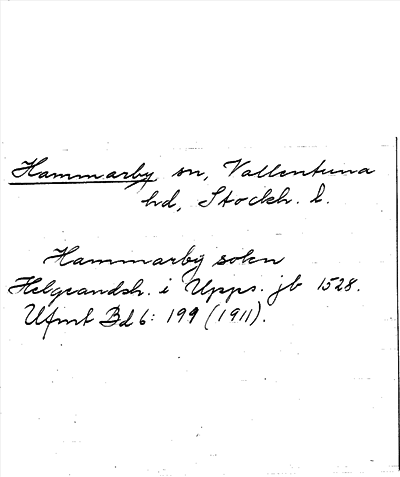 Hammarby sn, Vallentuna
hd, Stockh. l.
Hammarby soken
Helgeandsh. i Upps. jb 1528.
Ufmt Bd 6: 199 (1911).